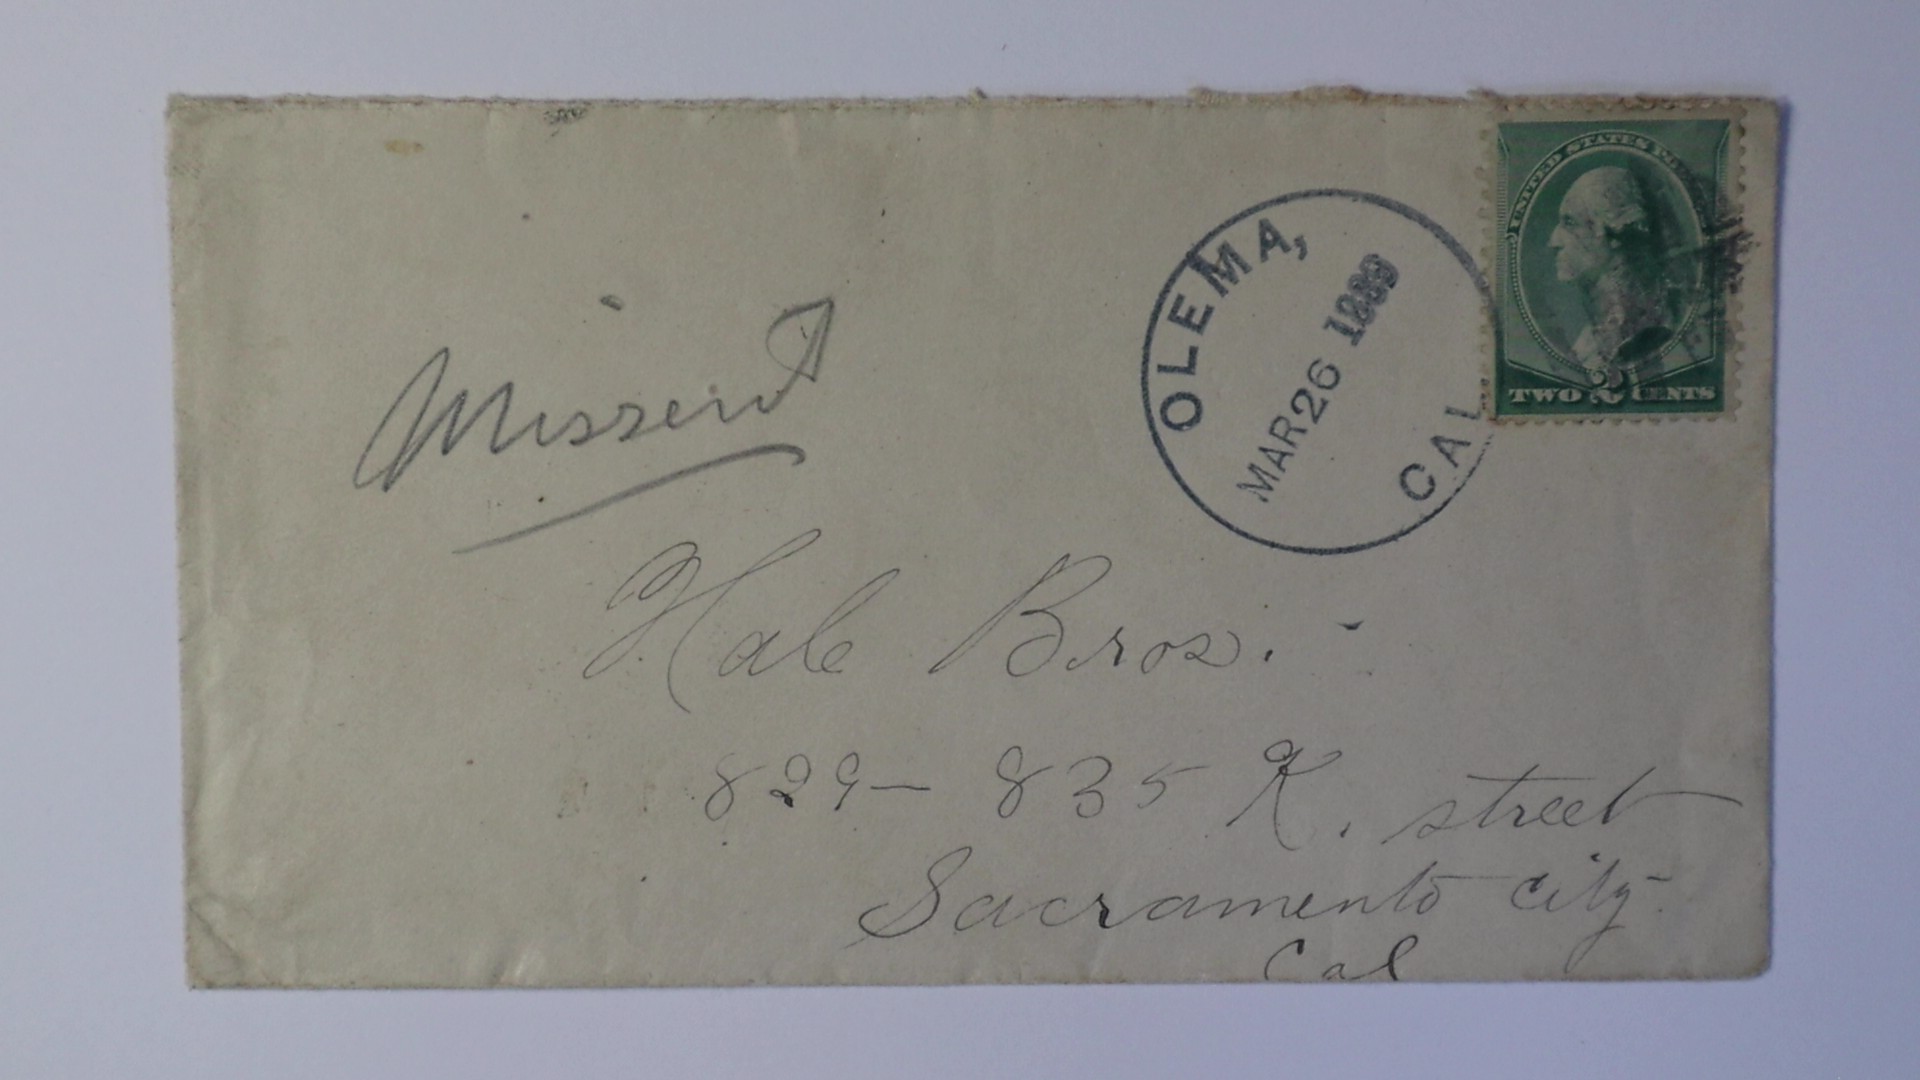 UNITED STATES
TWO 2 CENTS
OLEMA,
CAL
MAR 26
Missent
Hale Bros.
829 - 835 K. street
Sacramento City
Cal